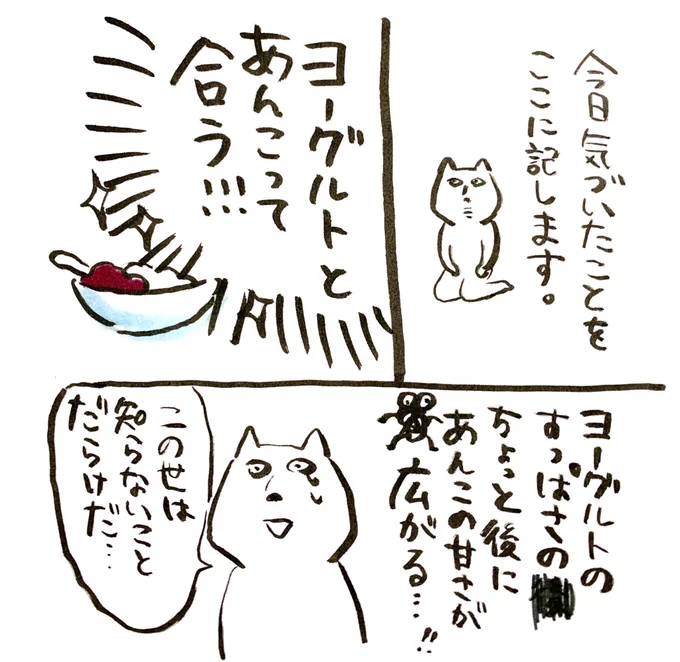 今日気づいたことを
ここに記します。
ヨーグルトと
あんこって
合う!!!
ヨーグルトの
すっぱさの
ちょっと後に
あんこの甘さが
広がる…!!
この世は
知らないこと
だらけだ…